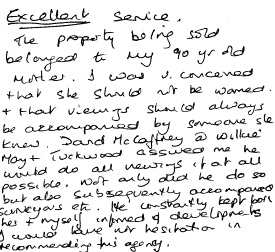 Excellent Service.
The property being sold
belonged to my 90 yr old
Mother. I was v. concerned
that she should not be worried.
+ that viewings should always
be accompanied by someone she
knew. David McCaffrey @ Wilkie
May + Tuckwood assured me he
would do all viewings if at all
possible. Not only did he do so
but also subsequently accompanied
surveyors etc. He constantly kept both
her + myself informed of developments
I would have not hesitation in
recommending this agency.